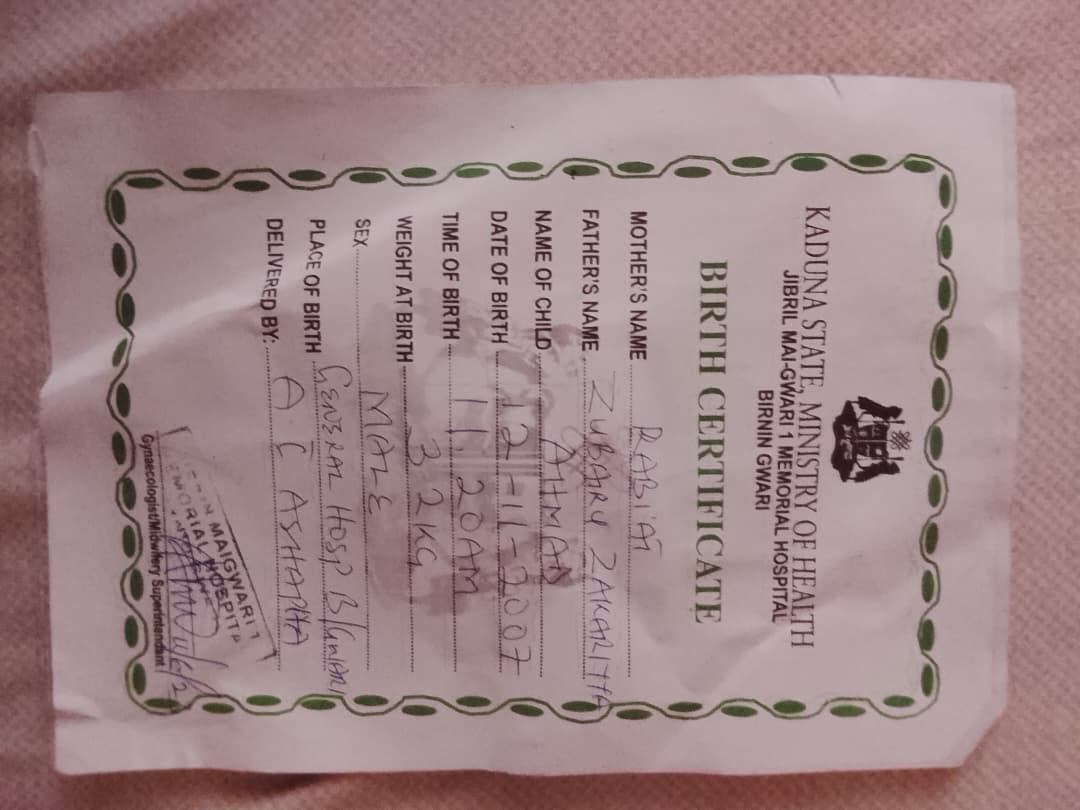 KADUNA STATE, MINISTRY OF HEALTH
JIBRIL MAI-GWARI 1 MEMORIAL HOSPITAL
BIRNIN GWARI
BIRTH CERTIFICATE
MOTHER'S NAME RABI'AT
FATHER'S NAME ZUBARU ZAKARIYYA
NAME OF CHILD AHMAD
DATE OF BIRTH 12-11-2007
TIME OF BIRTH 11.20AM
WEIGHT AT BIRTH 3 2KG
SEX MALE
PLACE OF BIRTH GENERAL HOSP B/GWARI
DELIVERED BY: A C ASHAPHA
MAIGWARI 1
HOSPITA
Gynaecologist/Midwifery Superintendant